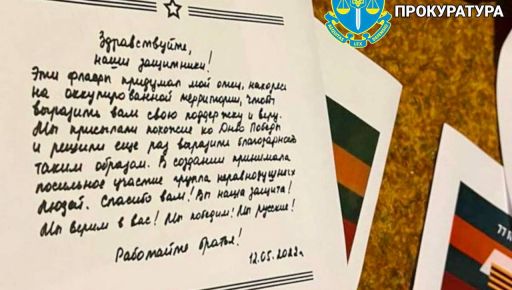 ПРОКУРАТУРА
Здравствуйте,
наши защитники!
Эти флаеры придумал мой отец, находясь
на оккупированной территории, чтобы
выразить вам свою поддержку и веру.
Мы присылали похожие ко Дню Победы
и решили еще раз выразить благодарность
таким образом. В создании принимала
посильное участие группа неравнодушных
людей. Спасибо вам! Вы наша защита!
Мы верим в вас! Мы победим! Мы русские!
Работайте братья!
12.05.2022г.
77